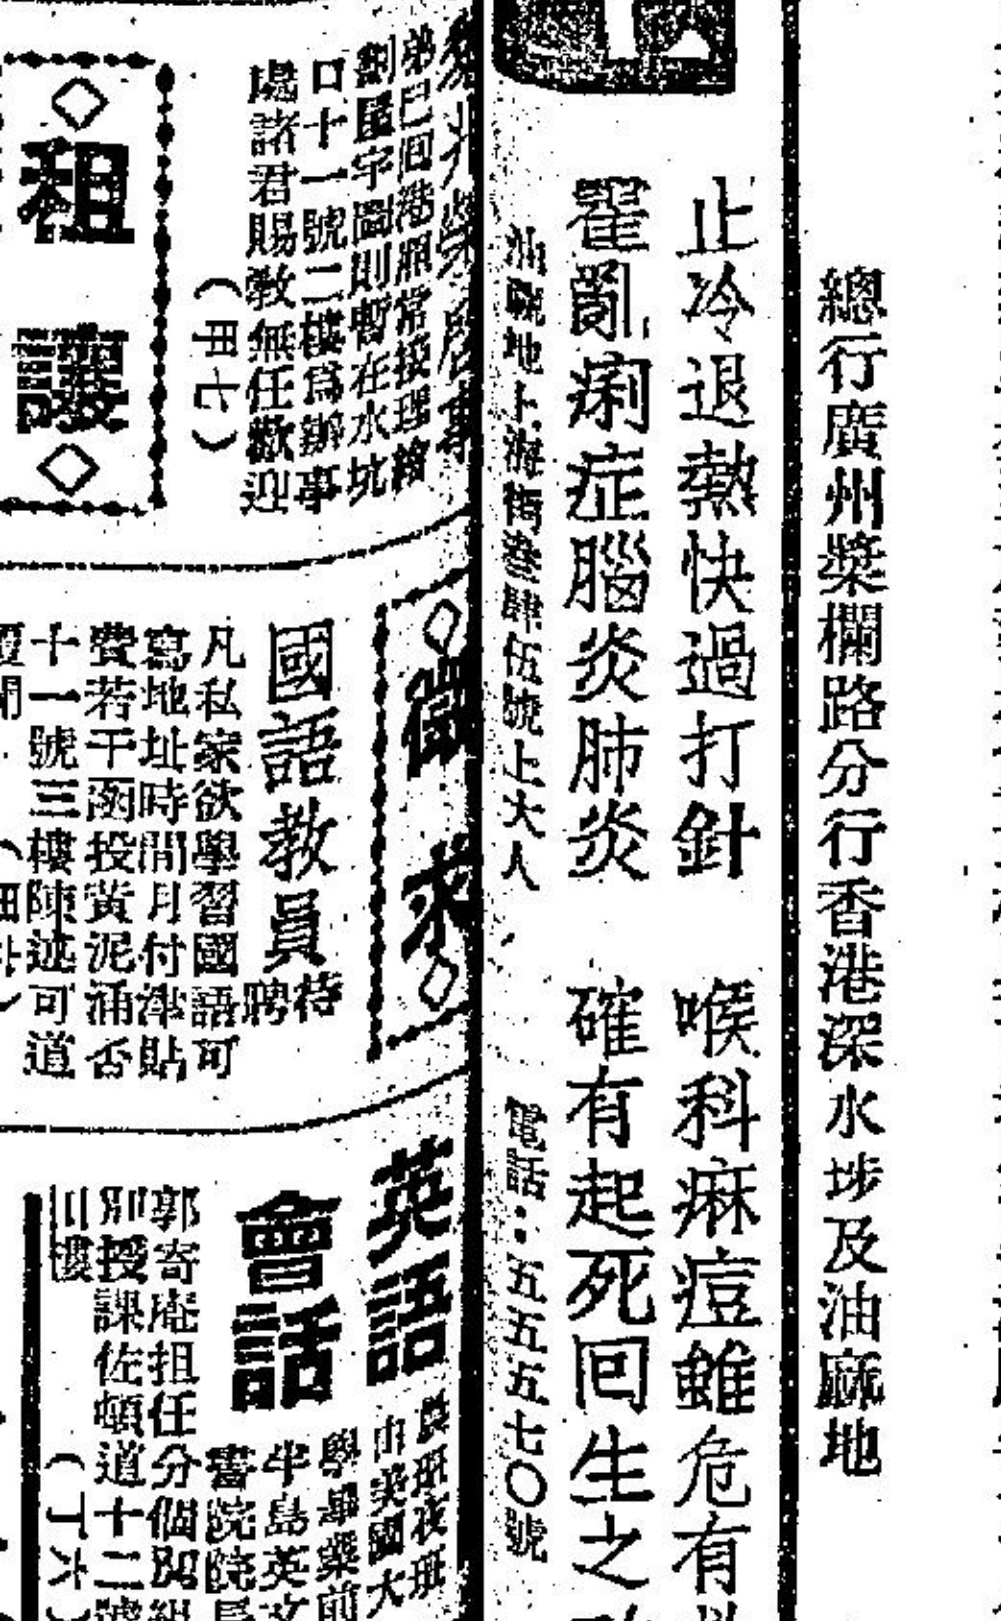 總行廣州槳欄路分行香港深水埗及油蔴地
止冷退熱快過打針 喉科麻痘雖危有
霍亂痢症腦炎肺炎 確有起死回生之
油蔴地上海街壹肆伍號上大人 電話：五五五七〇號
啓事
弟已回港照常接理繪
劃屋宇圖則暫在水坑
口十一號二樓爲辦事
處諸君賜教無任歡迎
（甲七）
◇租讓◇
◇徵求◇
國語教員
待聘
凡私家欲學習國語可
寫地址時間月付津貼
費若干函投黃泥涌道
十一號三樓陳述可否
英語
會話
晨班夜班
由美國大
學畢業前
半島英文
書院院長
郭寄庵担任分個別組
別授課佐頓道十二號
川樓
（丁六）